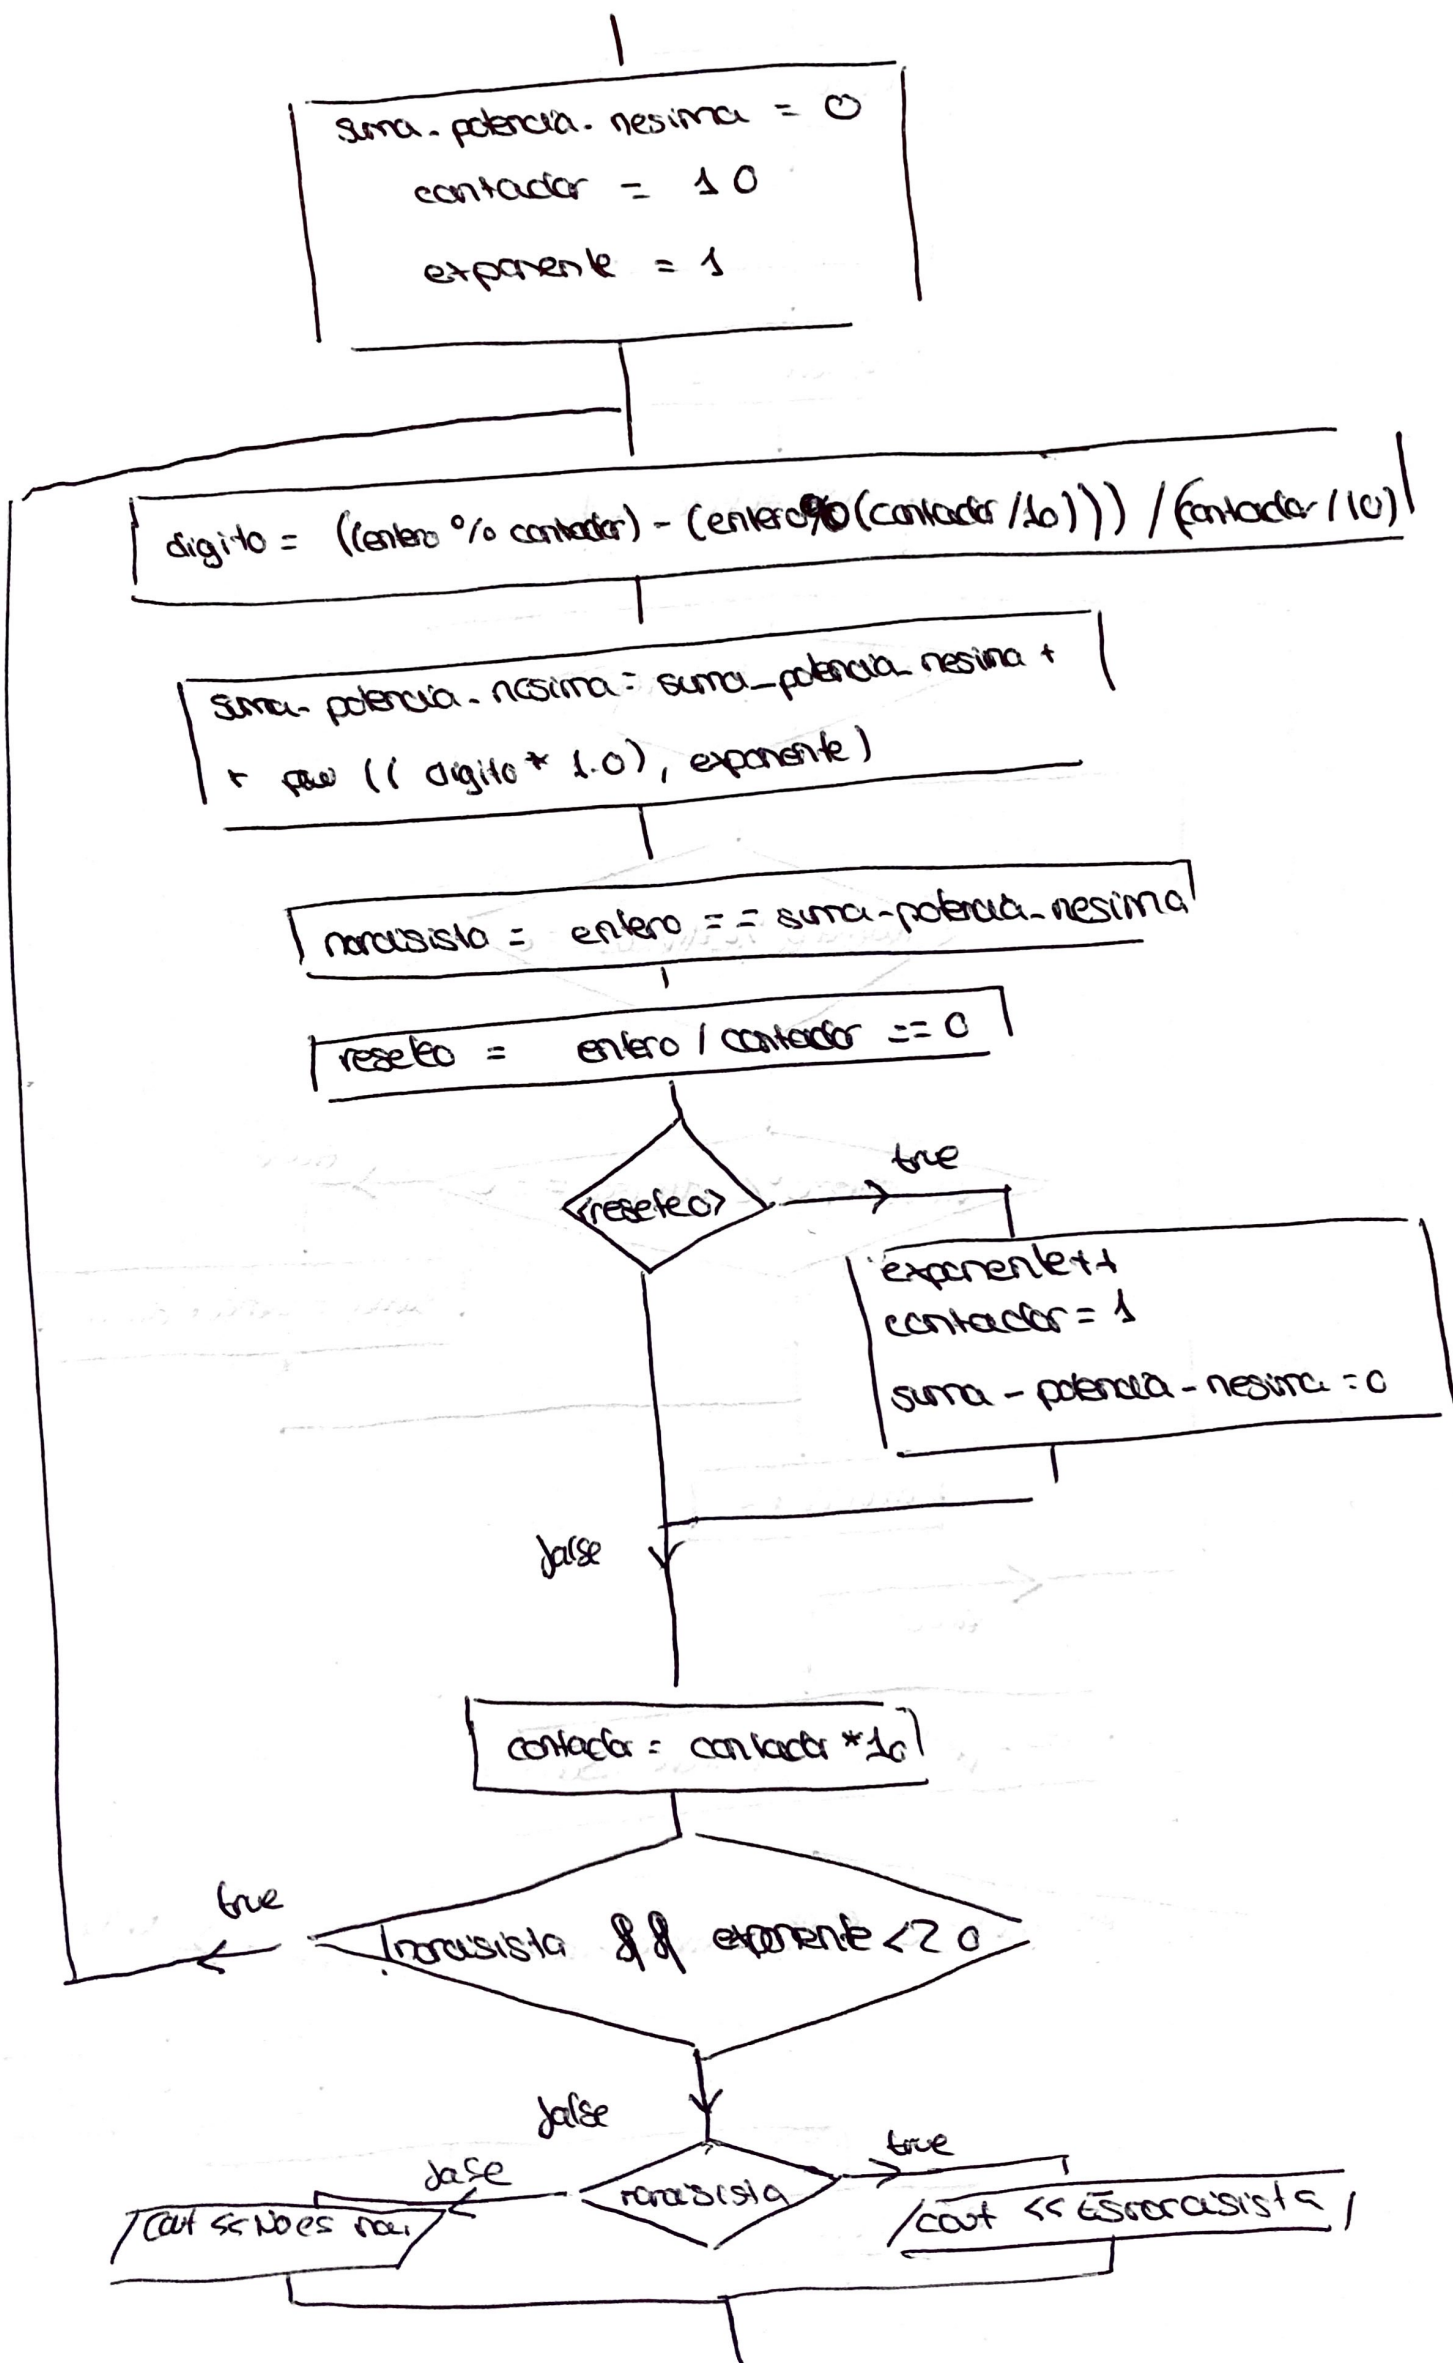 suma-potencia-nesima = 0
contador = 10
exponente = 1
digito = ((entero % contador) - (entero%(contador/10))) / (contador/10)
suma-potencia-nesima = suma_potencia_nesima +
+ pow (( digito * 1.0), exponente)
narcisista = entero == suma-potencia-nesima
reseteo = entero / contador == 0
<reseteo>
true
exponente++
contador = 1
suma - potencia - nesima = 0
false
contador = contador *10
true
!narcisista && exponente < 20
false
false
narcisista
true
cout << No es nar.
cout << Es narcisista